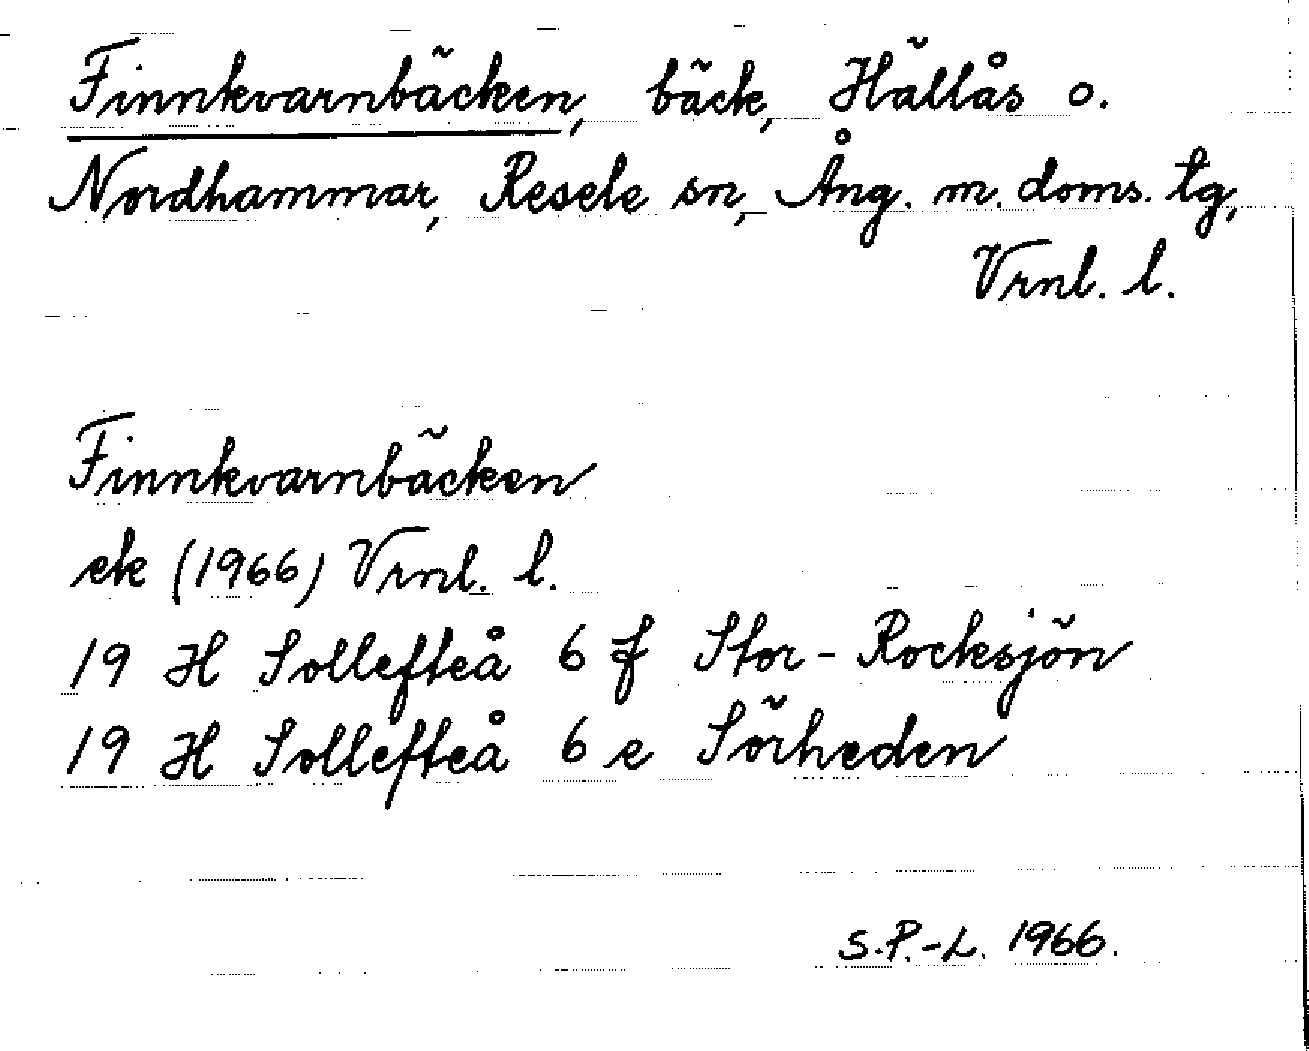 Finnkvarnbäcken, bäck, Hällås o.
Nordhammar, Resele sn, Ång. m. doms. tg,
Vrnl. l.
Finnkvarnbäcken
ek (1966) Vrnl. l.
19 H Sollefteå 6 f Stor-Rocksjön
19 H Sollefteå 6 e Sörheden
S.P.-L. 1966.